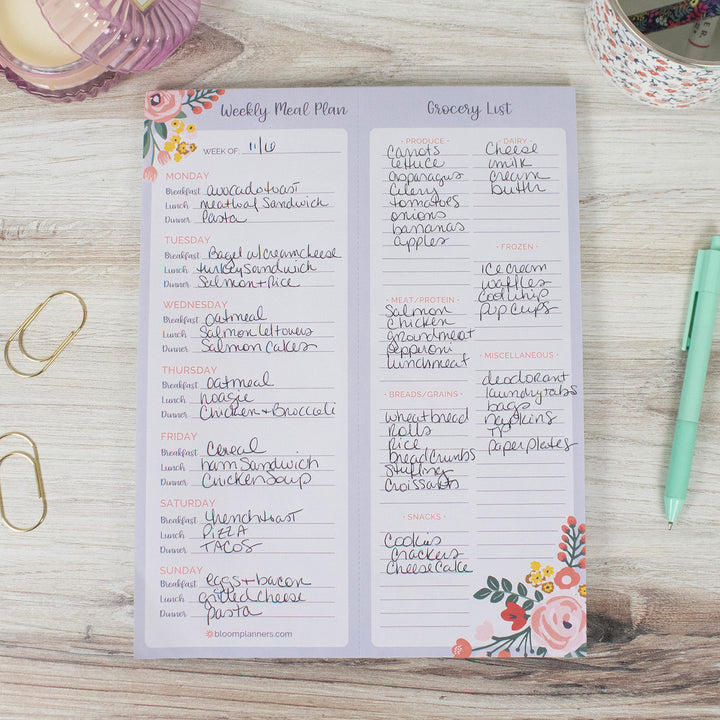 Weekly Meal Plan
WEEK OF: 11/6
MONDAY
Breakfast avocado toast
Lunch meatloaf Sandwich
Dinner Pasta
TUESDAY
Breakfast Bagel w/creamcheese
Lunch turkey Sandwich
Dinner Salmon + Rice
WEDNESDAY
Breakfast Oatmeal
Lunch Salmon leftovers
Dinner Salmon Cakes
THURSDAY
Breakfast oatmeal
Lunch hoagie
Dinner Chicken + Broccoli
FRIDAY
Breakfast Cereal
Lunch ham Sandwich
Dinner Chicken Soup
SATURDAY
Breakfast french toast
Lunch PIZZA
Dinner TACOS
SUNDAY
Breakfast eggs + bacon
Lunch grilled Cheese
Dinner pasta
bloomplanners.com
Grocery List
· PRODUCE ·
Carrots
lettuce
asparagus
Celery
tomatoes
onions
bananas
apples
· MEAT/PROTEIN ·
Salmon
Chicken
ground meat
Pepperoni
lunchmeat
· BREADS/GRAINS ·
wheat bread
Rolls
Rice
bread crumbs
Stuffing
Croissants
· SNACKS ·
Cookies
Crackers
Cheese Cake
· DAIRY ·
Cheese
milk
cream
butter
· FROZEN ·
ice cream
waffles
cool whip
pup cups
· MISCELLANEOUS ·
deodorant
laundry tabs
bags
napkins
TP
paper plates